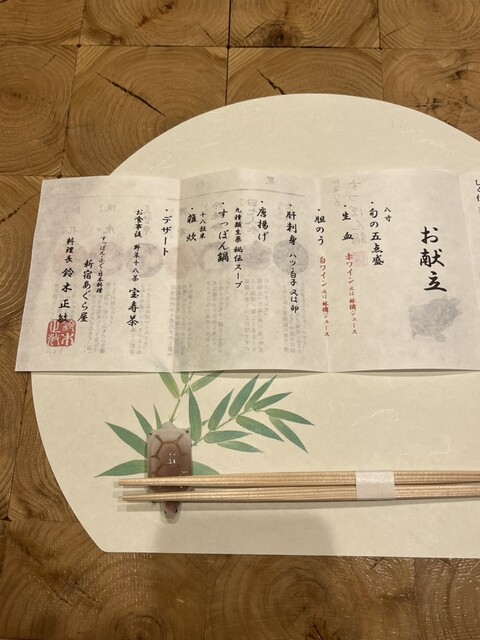 お献立
八寸
・旬の五点盛
・生血 赤ワイン又は林檎ジュース
・胆のう 白ワイン又は林檎ジュース
・肝刺身 ハツ・白子又は卵
・唐揚げ
九種類生薬秘伝スープ
・すっぽん鍋
十八穀米
・雑炊
・デザート
お食事後 野菜十八茶 宝寿茶
すっぽん・ふぐ・日本料理
新宿あぐら屋
料理長 鈴木正